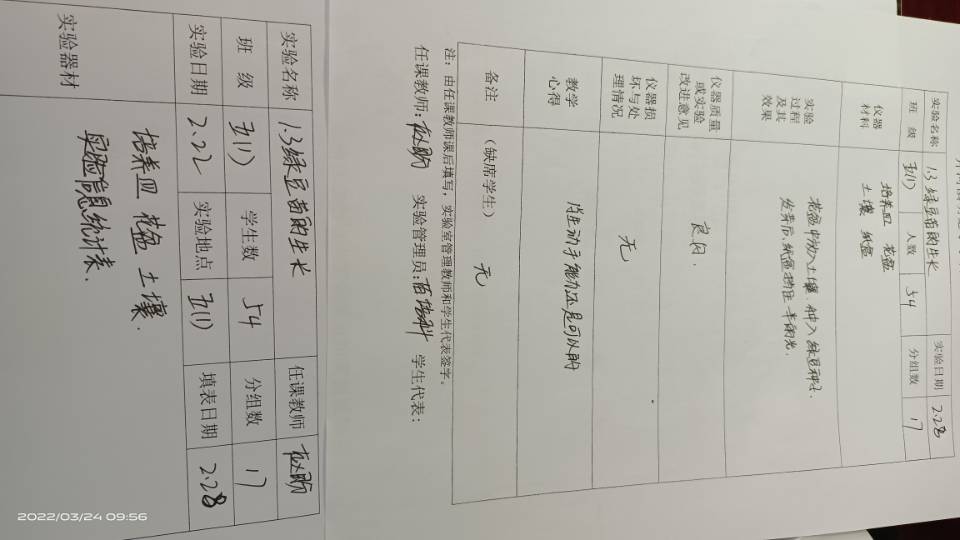 实验名称 1.3绿豆苗的生长 实验日期 2.28
班 级 五(1) 人数 54 分组数 17
仪器材料 培养皿 花盆
土壤 纸盒
实验过程及其效果 花盆中放入土壤,种入绿豆种子.
发芽后,纸盒挡住一半的光.
仪器质量或实验改进意见 良好.
仪器损坏与处理情况 无
教学心得 学生动手能力还是可以的
备注 (缺席学生) 无
注:由任课教师课后填写,实验室管理教师和学生代表签字。
任课教师: 实验管理员: 学生代表:
实验名称 1.3绿豆苗的生长 任课教师
班 级 五(1) 学生数 54 分组数 17
实验日期 2.22 实验地点 五(1) 填表日期 2.28
实验器材 培养皿 花盆 土壤.
实验信息统计表.
2022/03/24 09:56